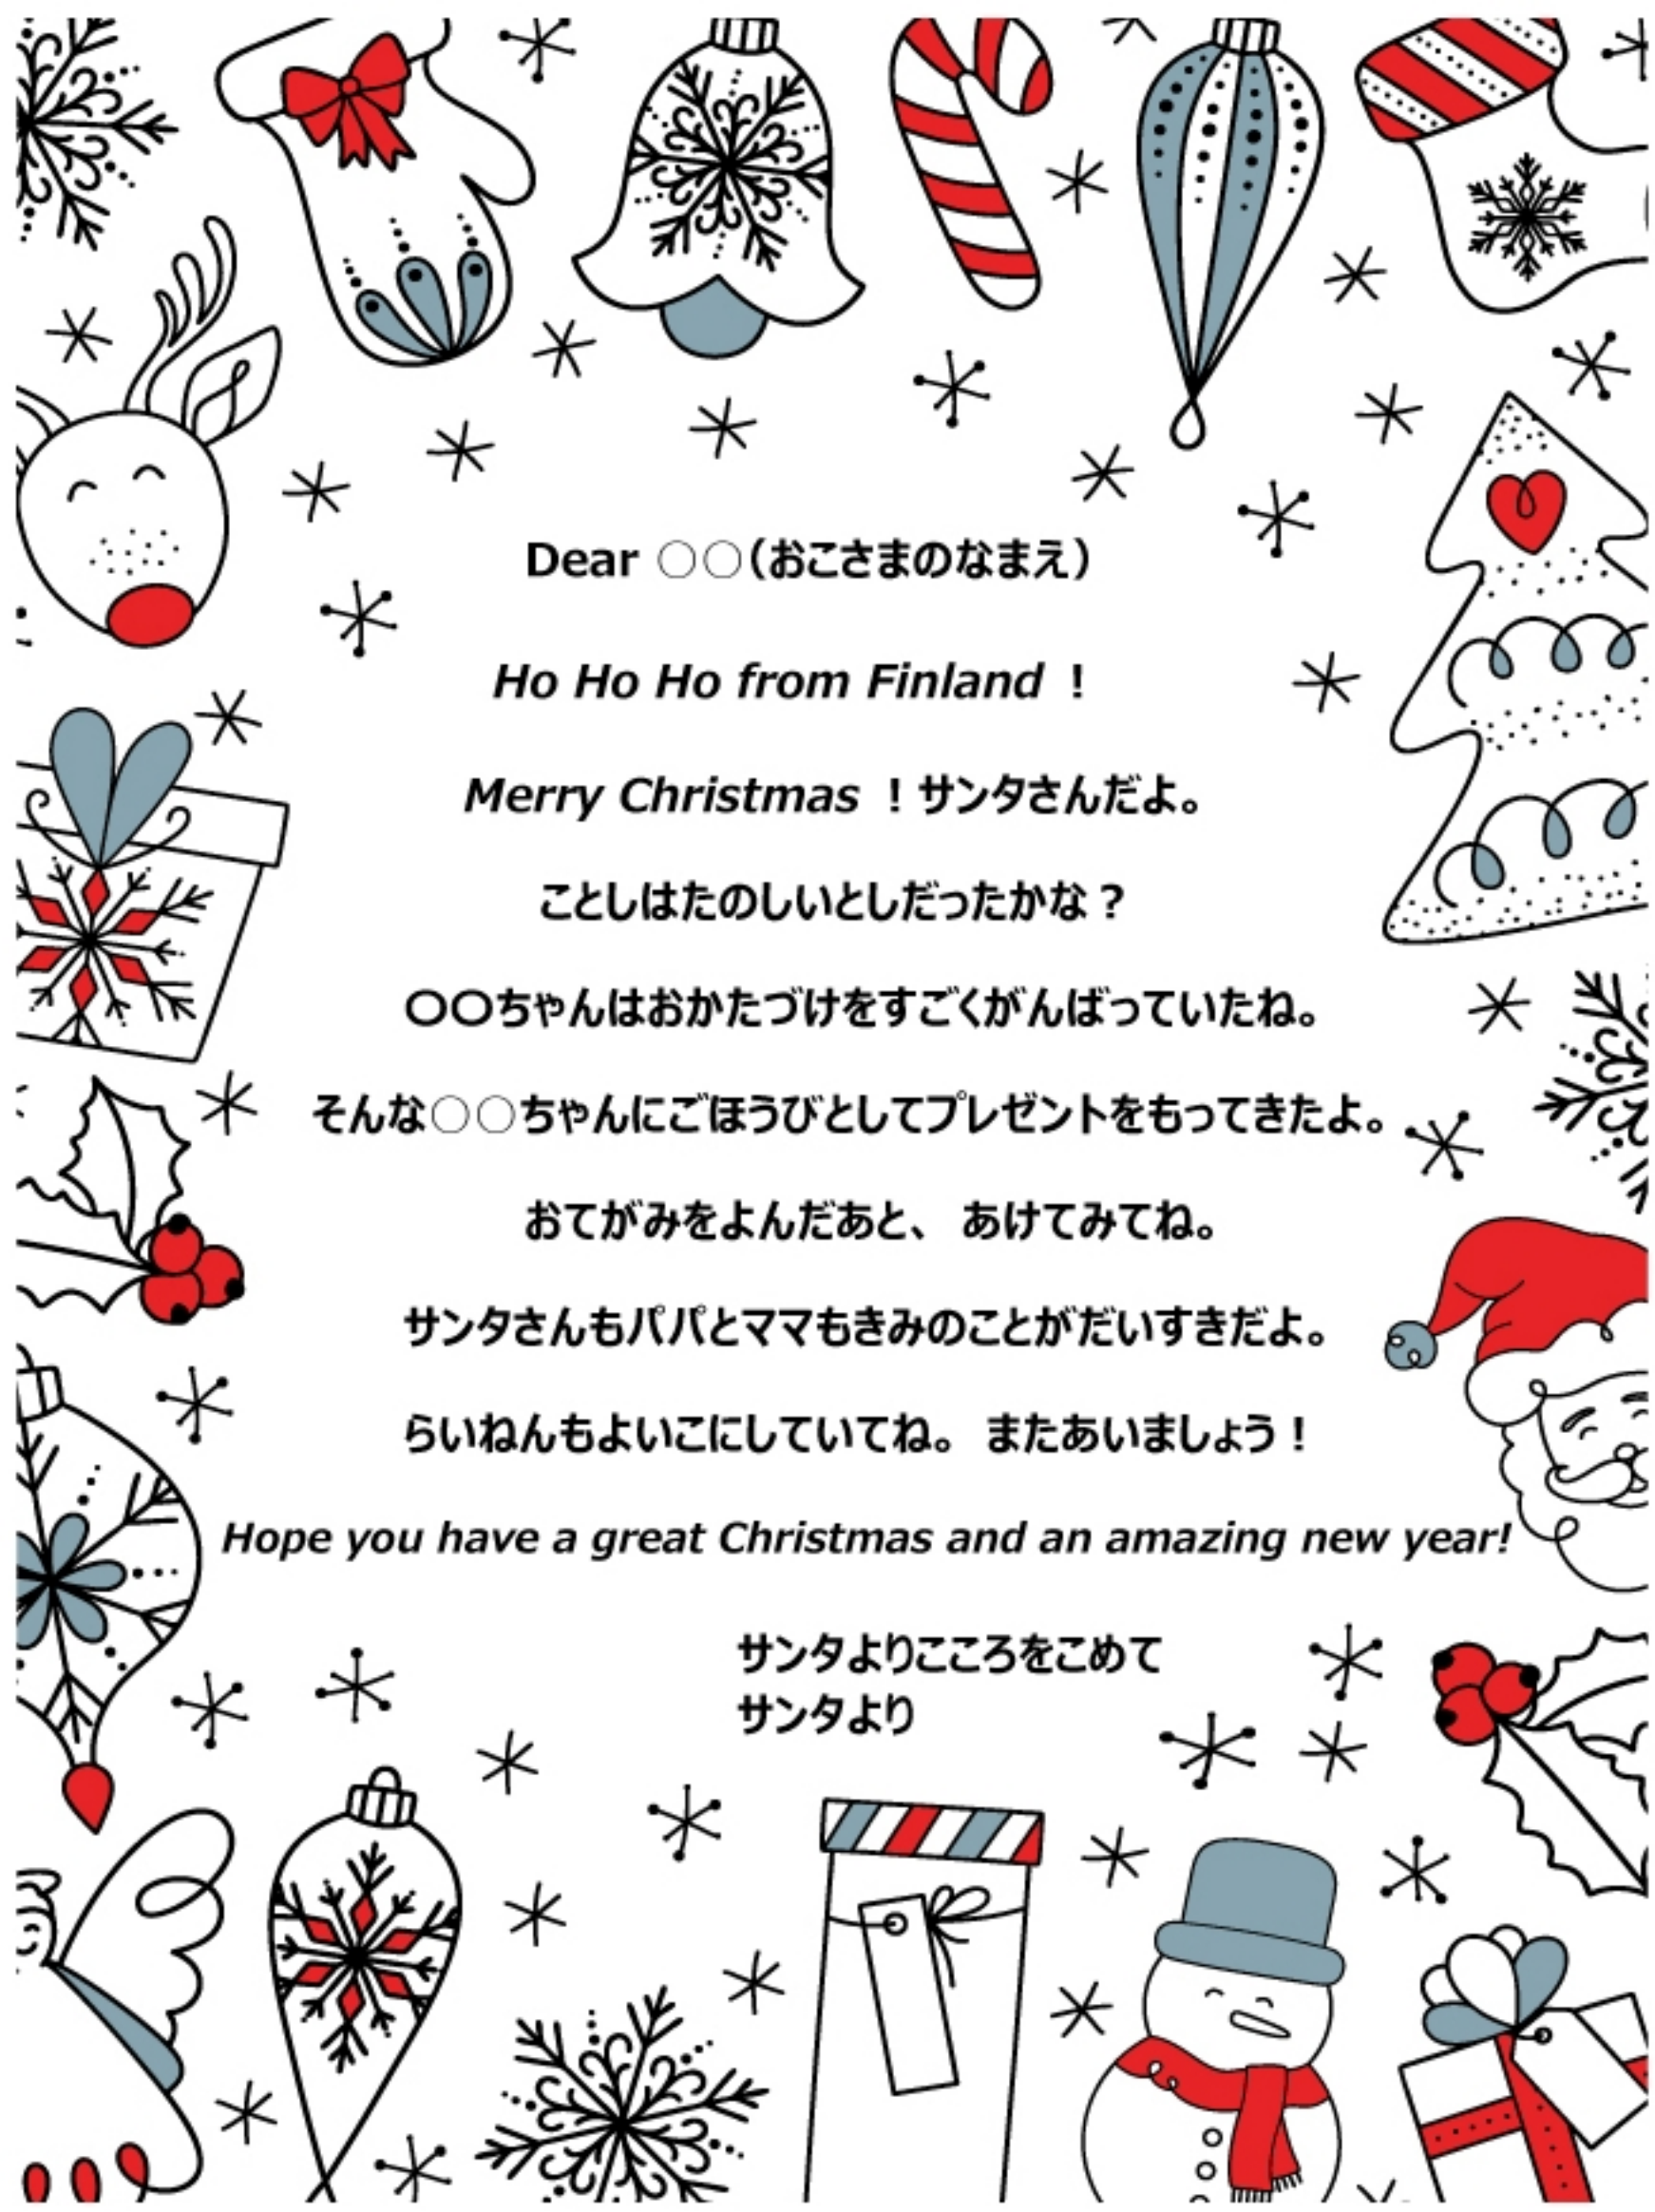 Dear ○○(おこさまのなまえ)
Ho Ho Ho from Finland !
Merry Christmas !サンタさんだよ。
ことしはたのしいとしだったかな?
〇〇ちゃんはおかたづけをすごくがんばっていたね。
そんな○○ちゃんにごほうびとしてプレゼントをもってきたよ。
おてがみをよんだあと、 あけてみてね。
サンタさんもパパとママもきみのことがだいすきだよ。
らいねんもよいこにしていてね。 またあいましょう!
Hope you have a great Christmas and an amazing new year!
サンタよりこころをこめて
サンタより